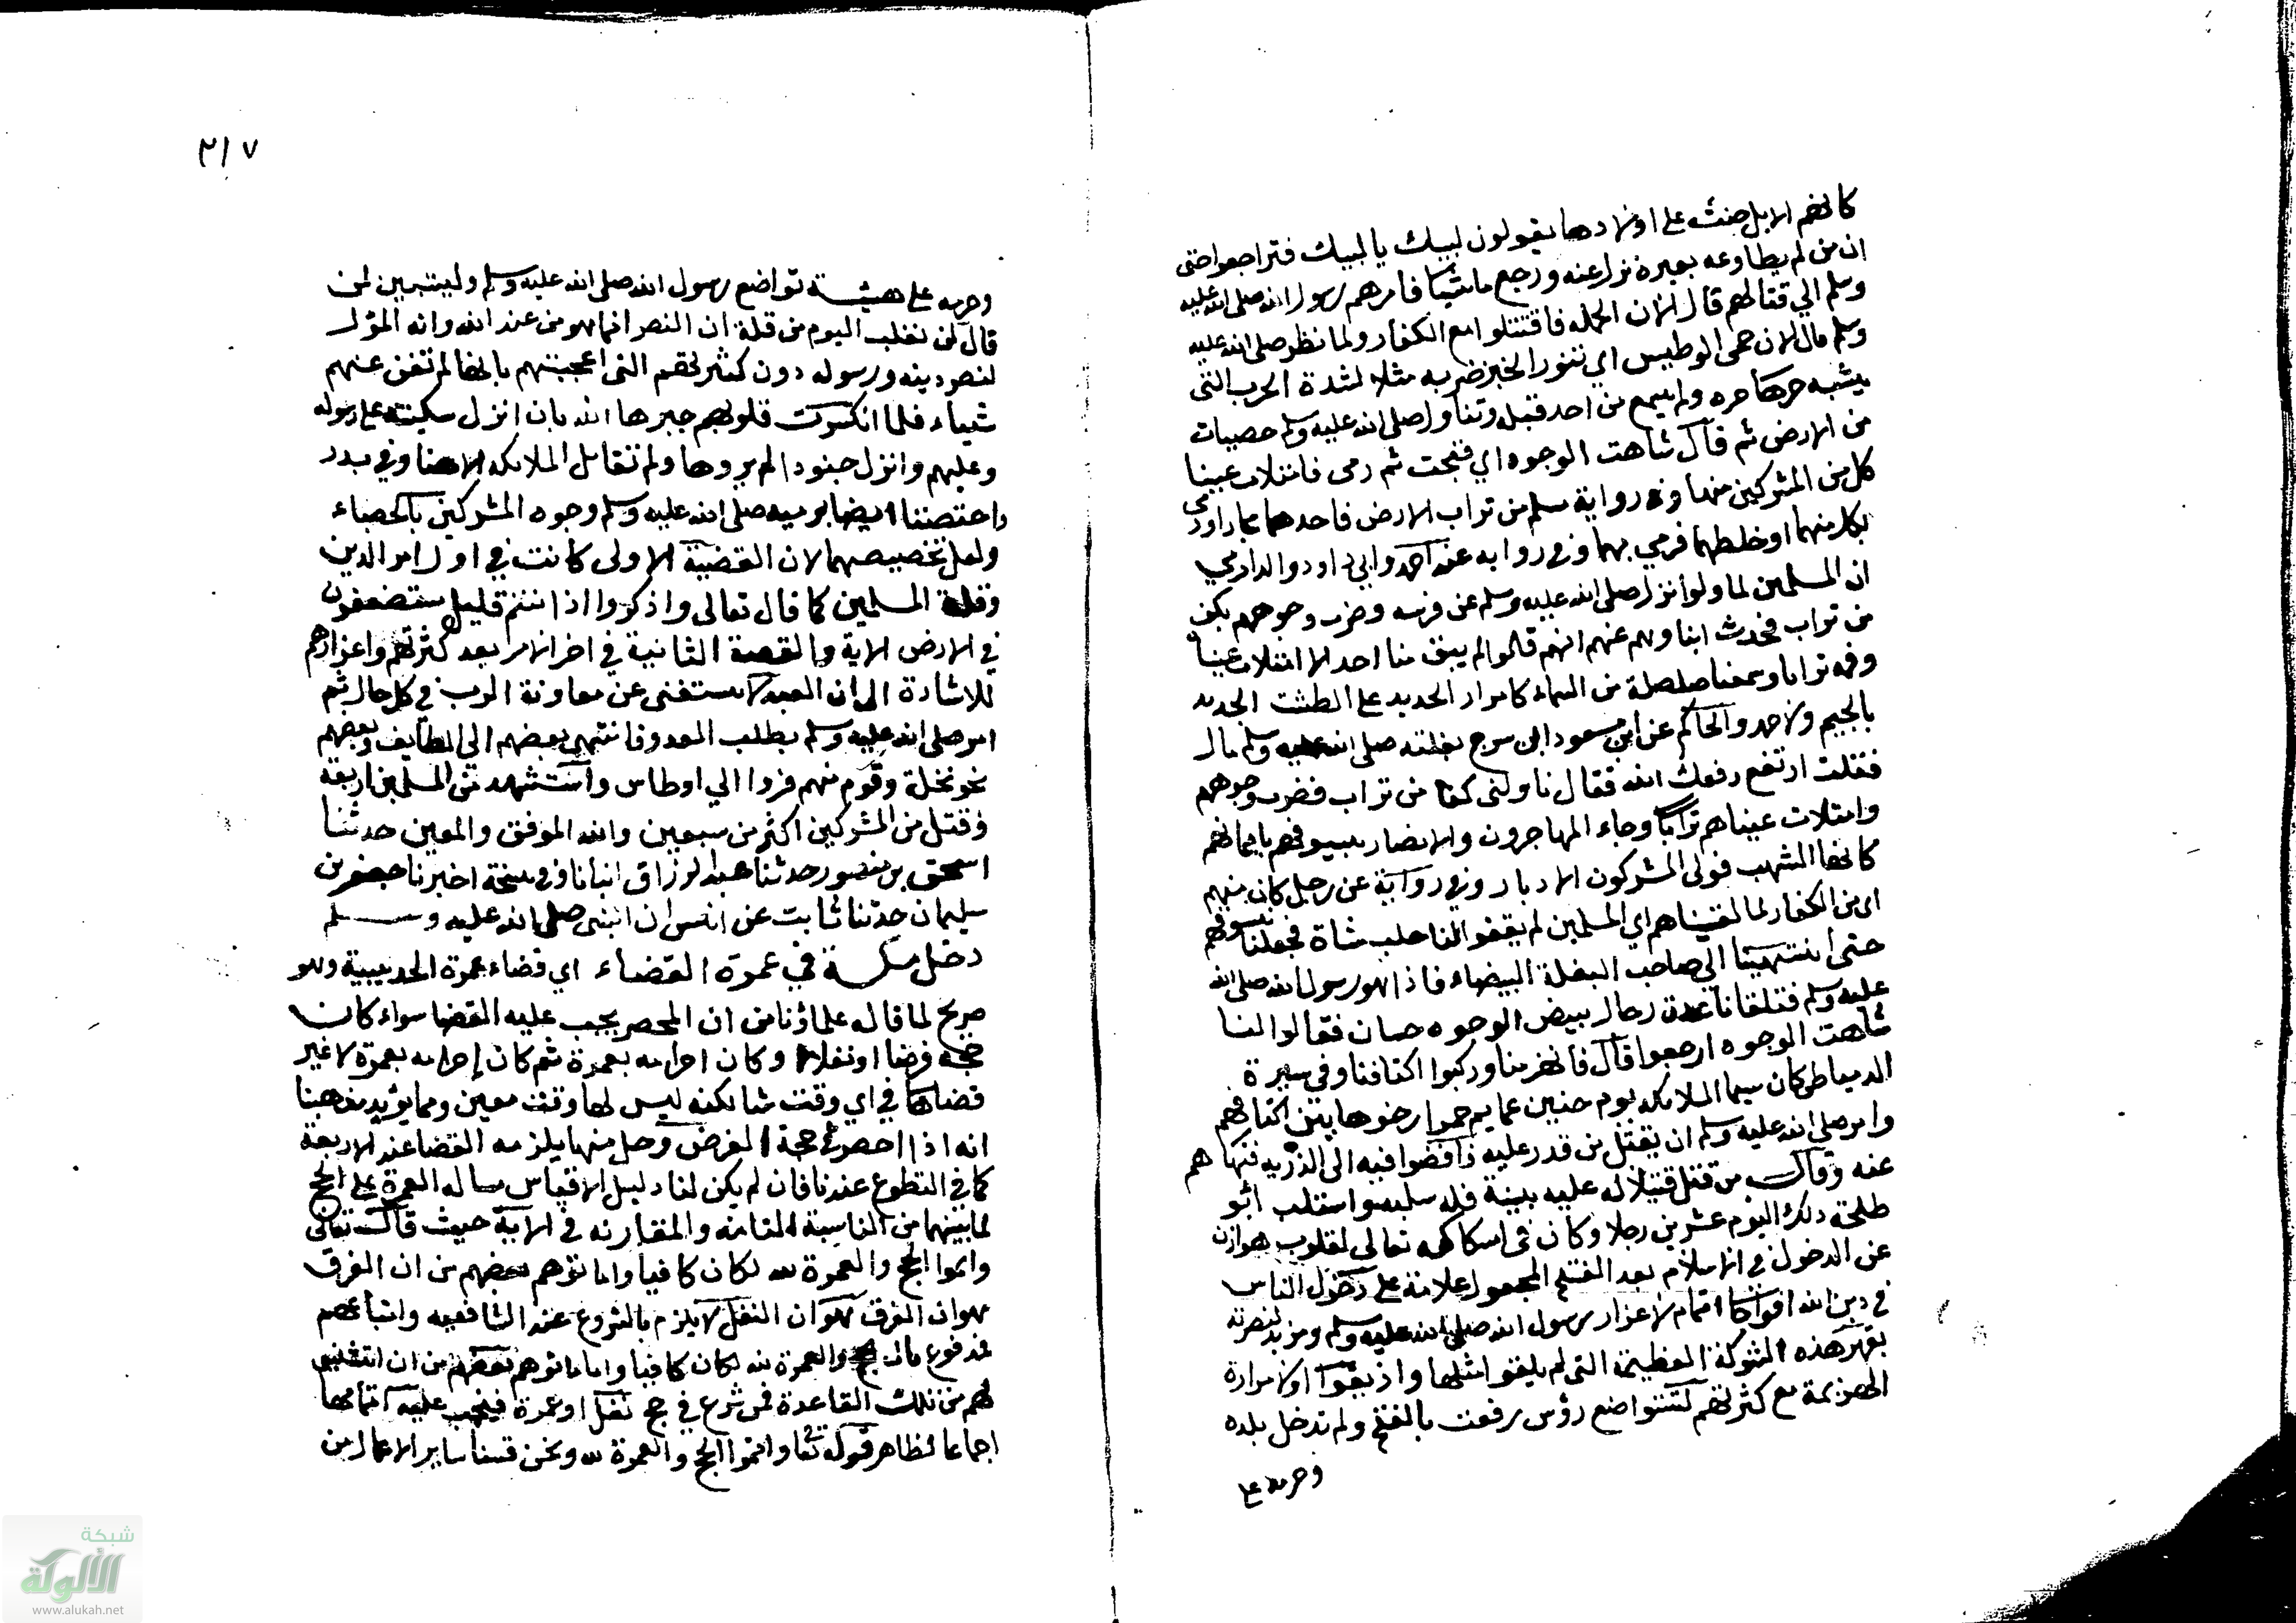 كانهم الابل حنت على اولادها يقولون لبيك يا لبيك فتراجعوا حتى
ان من لم يطاوعه بعيره نزل عنه ورجع ماشيا فامرهم رسول الله صلى الله عليه
وسلم الي قتالهم قال الان الحمله فاقتتلوا مع الكفار ولما نظر صلى الله عليه
وسلم قال الان حمى الوطيس اي تنور الخبز ضربه مثلا لشدة الحرب التي
يشبه حرها حره ولم يسمع من احد قبله وتناول صلى الله عليه وسلم حصيات
من الارض ثم قال شاهت الوجوه اي قبحت ثم رمى فامتلات عينا
كل من المشركين منها وفي رواية مسلم من تراب الارض فاحدهما مجاز او رمى
بكل منهما او خلطهما فرمي بهما وفي روايه عند احمد وابي داود والدارمي
ان المسلمين لما ولوا نزل صلى الله عليه وسلم عن فرسه وضرب وجوههم بكف
من تراب فحدث ابناوهم عنهم انهم قالوا لم يبق منا احد الا امتلات عيناه
وفمه ترابا وسمعنا صلصلة من السماء كامرار الحديد على الطشت الجديد
بالجيم ولاحمد والحاكم عن ابن مسعود ان سرج بغلته صلى الله عليه وسلم مال
فقلت ارتفع رفعك الله فقال ناولني كفا من تراب فضرب وجوههم
وامتلات عيناهم ترابا وجاء المهاجرون والانصار بسيوفهم بايمانهم
كانها الشهب فولى المشركون الادبار وفي رواية عن رجل كان منهم
اى من الكفار لما لقيناهم اي المسلمين لم يقفوا لنا حلب شاة فجعلنا نسوقهم
حتى انتهينا الى صاحب البغلة البيضاء فاذا هو رسول الله صلى الله
عليه وسلم فتلقانا عنده رجال بيض الوجوه حسان فقالوا لنا
شاهت الوجوه ارجعوا قال فانهزمنا وركبوا اكتافنا وفي سيرة
الدمياطي كان سيما الملائكه يوم حنين عمايم حمرا ارخوها بين اكتافهم
وامر صلى الله عليه وسلم ان يقتل من قدر عليه فافضوا فيه الى الذريه فنهاهم
عنه وقال من قتل قتيلا له عليه بينة فله سلبه واستلب ابو
طلحة ذلك اليوم عشرين رجلا وكان في امساكه تعالى لقلوب هوازن
عن الدخول في الاسلام بعد الفتح المجعول علامة على دخول الناس
في دين الله افواجا اتمام لاعزاز رسول الله صلى الله عليه وسلم ومزيد لنصرته
بقهر هذه الشوكة العظيمة التي لم يلقوا مثلها واذيقوا اولا مرارة
الهزيمة مع كثرتهم لتتواضع رؤس رفعت بالفتح ولم تدخل بلده
وحرمه على
٢١٧
وحرمه على هيئة تواضع رسول الله صلى الله عليه وسلم وليتبين لمن
قال لن نغلب اليوم من قلة ان النصر انما هو من عند الله وانه المؤل
لنصر دينه ورسوله دون كثرتهم التى اعجبتهم بانها لم تغن عنهم
شيياء فلما انكسرت قلوبهم جبرها الله بان انزل سكينته على رسوله
وعليهم وانزل جنودا لم يروها ولم تقاتل الملائكه الا هنا وفي بدر
واختصتا ايضا برميه صلى الله عليه وسلم وجوه المشركين بالحصباء
ولعل تخصيصهما لان القضية الاولى كانت في اول امر الدين
وقلة المسلمين كما قال تعالى واذكروا اذ انتم قليل مستضعفون
في الارض الاية والقصة الثانية في اخر الامر بعد كثرتهم واعزازهم
للاشارة الى ان العبد لا يستغنى عن معاونة الرب في كل حال ثم
امر صلى الله عليه وسلم بطلب العدو فانتهى بعضهم الى الطايف وبعضهم
نحو نخلة وقوم منهم فروا الي اوطاس واستشهد من المسلمين اربعة
وقتل من المشركين اكثر من سبعين والله الموفق والمعين حدثنا
اسحق بن منصور حدثنا عبد الرزاق انبانا وفي نسخة اخبرنا جعفر بن
سليمان حدثنا ثابت عن انس ان النبي صلى الله عليه وسلم
دخل مكة في عمرة القضاء اي قضاء عمرة الحديبية وهو
صريح لما قاله علماؤنا من ان المحصر يجب عليه القضا سواء كان
حجه فرضا او نفلا وكان احرامه بعمرة ثم كان إحرامه بعمرة لا غير
قضاها في اي وقت شا لكنه ليس لها وقت معين ومما يؤيد مذهبنا
انه اذا احصر في حجة الفرض وحل منها يلزمه القضا عند الاربعة
كما في التطوع عندنا فان لم يكن لنا دليل الا قياس مساله العمرة على الحج
لما بينهما من المناسبة التامه والمقارنه في الاية حيث قال تعالى
واتموا الحج والعمرة لله لكان كافيا واما توهم بعضهم من ان الفرق
هو ان الفرق هو ان النفل لا يلزم بالشروع عند الشافعيه واتباعهم
فمدفوع بان الحج والعمرة لله لكان كافيا واما ما توهم بعضهم من ان
لهم من تلك القاعدة فمن شرع في حج نفل او عمرة فيجب عليه اتمامها
اجماعا لظاهر قوله تعا واتموا الحج والعمرة لله ونحن قسنا ساير الاعمال من
شبكة
الألوكة
www.alukah.net